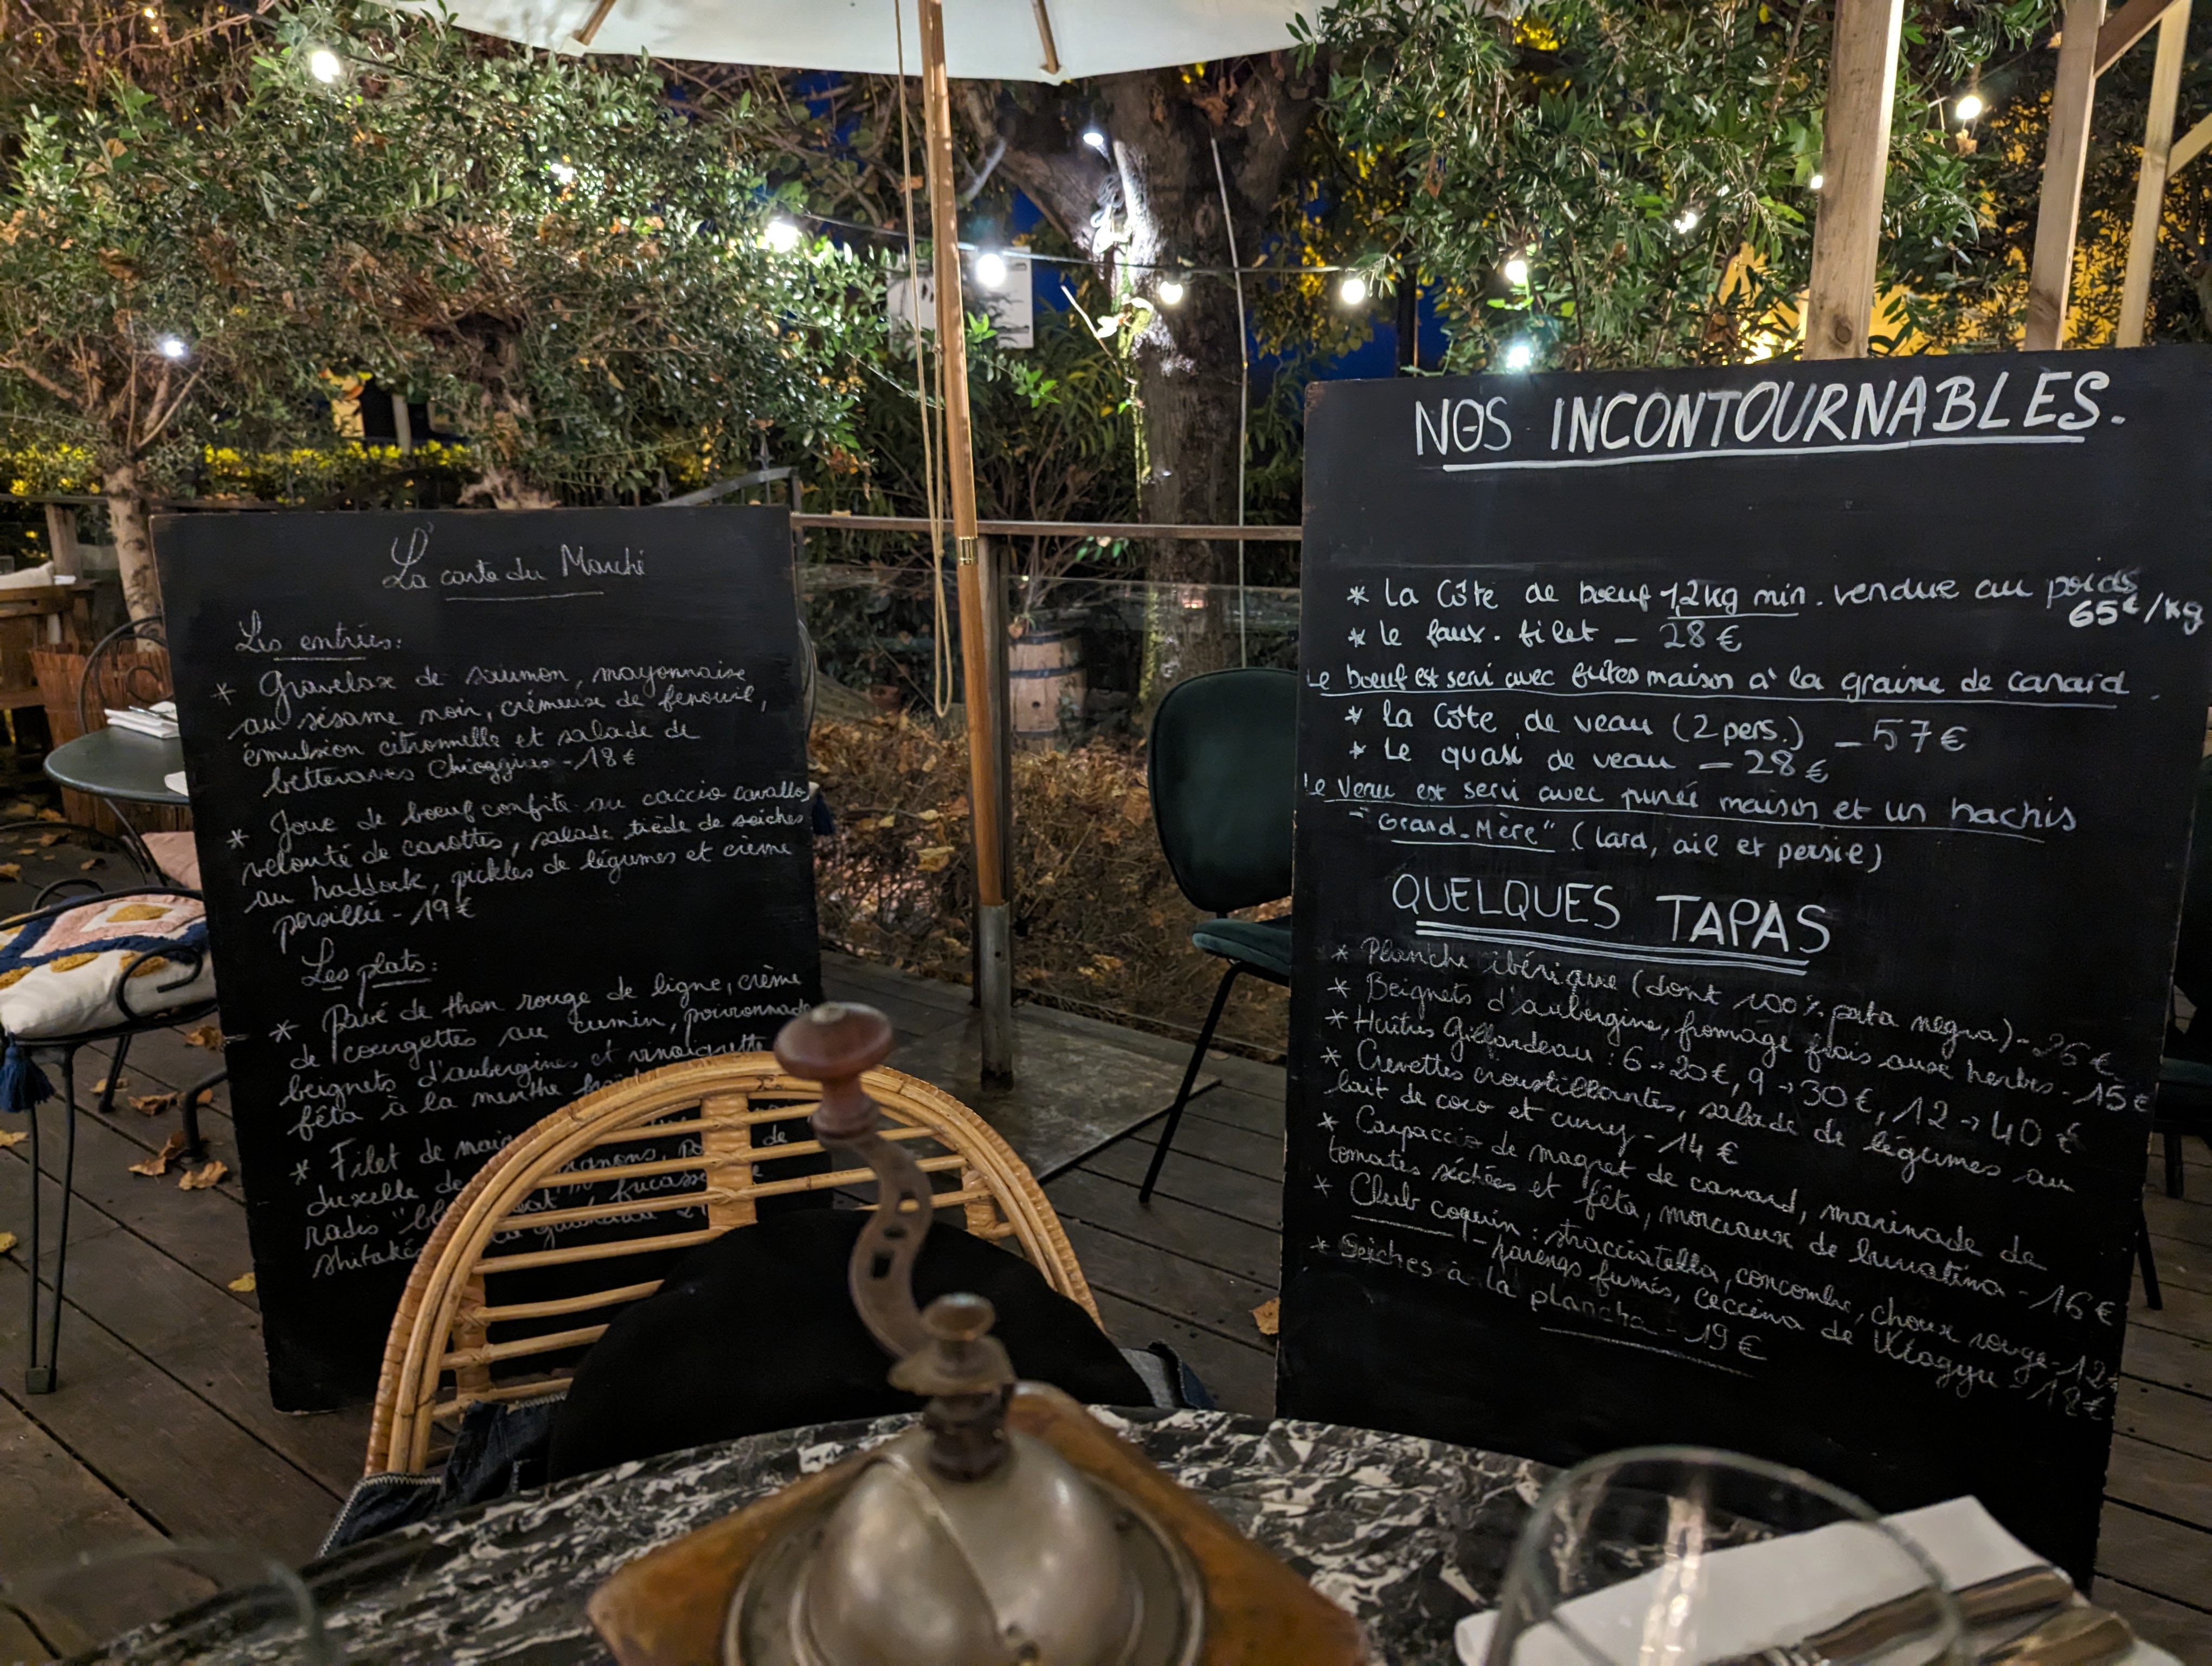 La carte du Marché
Les entrées:
* Gravelax de saumon, mayonnaise
au sésame noir, crémeuse de fenouil,
émulsion citronnelle et salade de
betteraves Chioggias - 18€
* Joue de boeuf confite au caccio cavallo,
velouté de carottes, salade tiède de seiches
au haddock, pickles de légumes et crème
persillée - 19€
Les plats:
* Pavé de thon rouge de ligne, crème
de courgettes au cumin, poivronnade
beignets d'aubergines et vinaigrette
fêta à la menthe
* Filet de
duxelle de
radis
shitakés
NOS INCONTOURNABLES.
* La Côte de boeuf 1,2kg min. vendue au poids
65€/kg
* Le faux-filet - 28€
Le boeuf est servi avec frites maison à la graine de canard.
* La Côte de veau (2 pers.) - 57€
* Le quasi de veau - 28€
Le Veau est servi avec purée maison et un hachis
"Grand-Mère" (lard, ail et persil)
QUELQUES TAPAS
* Planche ibérique (dont 100% pata negra) - 26€
* Beignets d'aubergine, fromage frais aux herbes - 15€
* Huîtres Gillardeau : 6 → 20€, 9 → 30€, 12 → 40€
* Crevettes croustillantes, salade de légumes au
lait de coco et curry - 14€
* Carpaccio de magret de canard, marinade de
tomates séchées et fêta, morceaux de burratina - 16€
* Club coquin : stracciatella, concombre, choux rouge - 12€
- parengs fumés, ceccina de Wagyu - 18€
* Seiches à la plancha - 19€